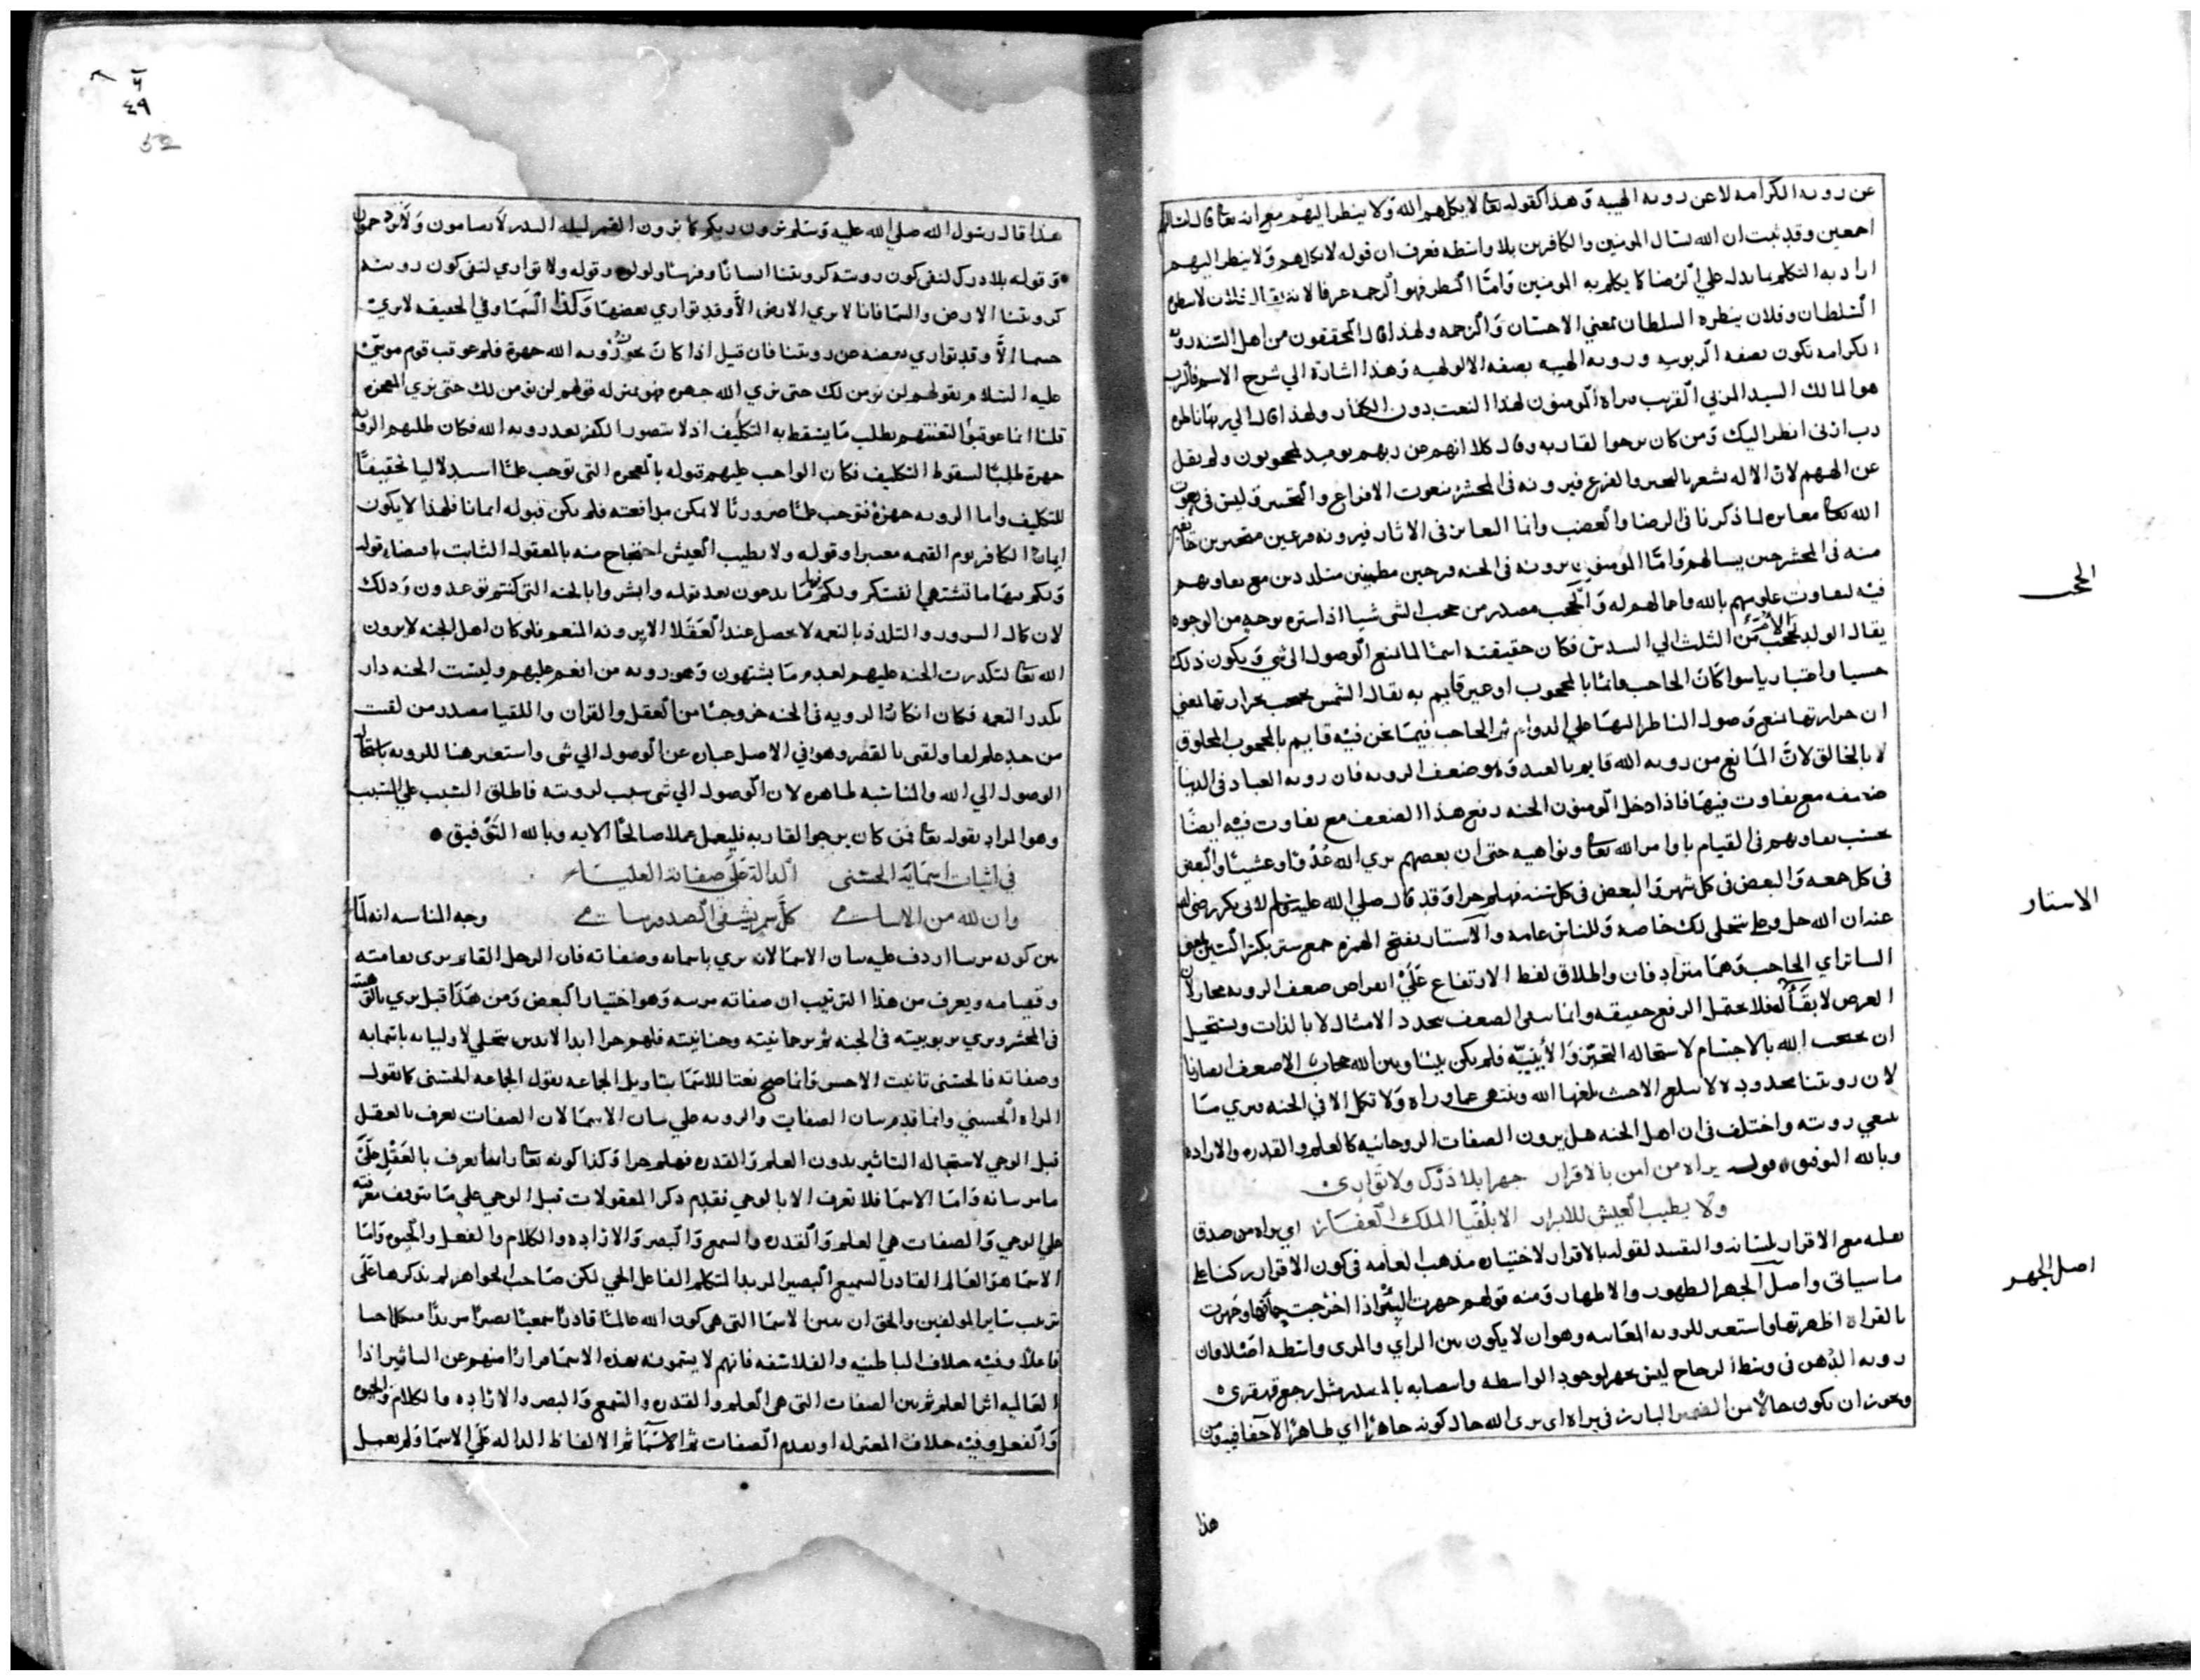 عن رويه الكرامه لا عن رويه الهيبه وهذا كقوله تعا لا يكلمهم الله ولا ينظر اليهم مع انه تعا قال
اجمعين وقد ثبت ان الله يسال المومنين والكافرين بلا واسطه فعرف ان قوله لا يكلمهم ولا ينظر اليهم
اراد به التكلم بما يدل علي الرضا كما يكلم به المومنين واما النظر فهو الرحمه عرفا لانه يقال فلان لا ينظره
السلطان وفلان ينظره السلطان بمعني الاحسان والرحمه ولهذا قال المحققون من اهل السنه رويه
الكرامه تكون بصفه الربوبيه ورويه الهيبه بصفه الالوهيه وهذا اشاره الي شرح الاسم فالرب
هو المالك السيد المربي القريب يراه المومنون لهذا النعت دون الكفار ولهذا قال الي ربها ناظره
رب ارني انظر اليك ومن كان يرجوا لقا ربه وقال كلا انهم عن ربهم يوميد لمحجوبون ولم يقل
عن الههم لان الاله يشعر بالتحير والفزع فيرونه في المحشر بنعوت الافزاع والتحسير وليس في نعوت
الله تعا مغايره لما ذكرنا في الرضا والغضب وانما التغاير في الاثار فيرونه فزعين متحيرين
منه في المحشر حين يسالهم واما المومنون يرونه في الجنه فرحين مطمينين متلددين مع تفاوتهم
فيه لتفاوت علومهم بالله واعمالهم له والحجب مصدر من حجب الشي شيا اذا ستره بوجه من الوجوه
يقال الولد يحجب الام من الثلث الي السدس فكان حقيقته اسما لما يمنع الوصول الي شي ويكون ذلك
حسيا واعتباريا سوا كان الحاجب قائما بالمحجوب او غير قايم به يقال الشمس تحجب بحرارتها بمعني
ان حرارتها تمنع وصول الناظر اليها علي الدوام ثم الحاجب فيما نحن فيه قايم بالمحجوب المخلوق
لا بالخالق لان المانع من رويه الله قايم بالعبد وهو ضعف الرويه فان رويه العباد في الدنيا
ضعيفه مع تفاوت فيها فاذا دخل المومنون الجنه رفع هذا الضعف مع تفاوت فيه ايضا
بحسب تفاوتهم في القيام باوامر الله تعا ونواهيه حتى ان بعضهم يري الله غدوا وعشيا والبعض
في كل جمعه والبعض في كل شهر والبعض في كل سنه فهلم جرا وقد قال صلي الله عليه وسلم لابي بكر رضي الله
عنه ان الله جل وعلا يتجلى لك خاصه وللناس عامه والاستار بفتح الهمزه جمع ستر بكسر السين بمعني
الساتر اي الحاجب وهما مترادفان واطلاق لفظ الارتفاع علي اعراض ضعف الرويه مجاز لان
العرض لا بقا له فلا يحتمل الرفع حقيقه وانما يبقى الضعف بتجدد الامثال لا بالذات ويستحيل
ان يحتجب الله بالاجسام لاستحاله التحيز والاينيه فلم يكن بيننا وبين الله حجاب الا ضعف ابصارنا
لان رويتنا محدوده لا تبلغ الا حيث بلغها الله وتنتهي عما وراه ولا تكمل الا في الجنه فنري ما
ينبغي رويته واختلف في ان اهل الجنه هل يرون الصفات الروحانيه كالعلم والقدره والاراده
وبالله التوفيق قوله يراه من امن بالاقرار جهرا بلا درك ولا تواري
ولا يطيب العيش للابرار الا بلقيا الملك الغفار اي يراه من صدق
بقلبه مع الاقرار بلسانه والتقييد لقوله بالاقرار لاختيار مذهب العامه في كون الاقرار ركنا علي
ما سياتي واصل الجهر الظهور والاظهار ومنه قولهم جهرت البئر اذا اخرجت حماتها وجهرت
بالقراه اظهرتها واستعير للرويه المعاينه وهو ان لا يكون بين الراي والمرى واسطه اصلا فان
رويه الدهن في وسط الزجاج ليس بجهر لوجود الواسطه وانتصابه بالمصدر مثل رجع قهقرى
ويجوز ان يكون حالا من الضمير البارز في يراه اى يرى الله حال كونه جاهرا اي ظاهرا لا خفا فيه ومن
هذا
الحجب
الاستار
اصل الجهر
٤٩
52
هذا قال رسول الله صلي الله عليه وسلم ترون ربكم كما ترون القمر ليله البدر لا تضامون ولا تزدحمون
وقوله بلا درك لنفي كون رويته كرويتنا انسانا وفرسا ولولو وقوله ولا تواري لنفي كون رويته
كرويتنا الارض والسما فانا لا نري الارض الا وقد تواري بعضها وكذا السما وفي الحقيقه لا نري
جسما الا وقد تواري بعضه عن رويتنا فان قيل اذا كان يجوز رويه الله جهرة فلم عوقب قوم موسي
عليه السلام بقولهم لن نومن لك حتى نري الله جهره فهو بمنزله قولهم لن نومن لك حتى نري المعجزه
قلنا انما عوقبوا لتعنتهم بطلب ما يسقط به التكليف اذ لا يتصور الكفر بعد رويه الله فكان طلبهم الرويه
جهرة طلبا لسقوط التكليف فكان الواجب عليهم قبوله بالمعجزه التى توجب علما استدلاليا تحقيقا
للتكليف واما الرويه جهرة فتوجب علما ضروريا لا يمكن مدافعته فلم يكن قبوله ايمانا فلهذا لا يكون
ايمان الكافر يوم القيمه معتبرا وقوله ولا يطيب العيش احتجاج منه بالمعقول الثابت باقتضاء قوله
ولكم فيها ما تشتهي انفسكم ولكم فيها ما تدعون بعد قوله وابشروا بالجنه التى كنتم توعدون وذلك
لان كمال السرور والتلدد بالنعمه لا يحصل عند العقلا الا برويه المنعم فلو كان اهل الجنه لا يرون
الله تعا لتكدرت الجنه عليهم لعدم ما يشتهون وهو رويه من انعم عليهم وليست الجنه دار
تكدر النعمه فكان انكار الرويه في الجنه خروجا من العقل والقران واللقيا مصدر من لقيت
من حد علم لقا ولقى بالقصر وهو في الاصل عباره عن الوصول الي شى واستعير هنا للرويه
الوصول الي الله والمناسبه ظاهره لان الوصول الي شى سبب لرويته فاطلق السبب علي المسبب
وهو المراد بقوله تعا فمن كان يرجوا لقا ربه فليعمل عملا صالحا الايه وبالله التوفيق
في اثبات اسمائه الحسنى الدالة على صفاته العلياء
وان لله من الاسامي كل سم يشفي الصدور سامي وجه المناسبه انه لما
بين كونه مرييا اردف عليه بيان الاسما لانه يري باسمائه وصفاته فان الرجل القائم يرى بقامته
وقيامه ويعرف من هذا الترتيب ان صفاته مرييه وهو اختيار البعض ومن هذا قيل يري بالوهيته
في المحشر ويري بربوبيته في الجنه ثم برحمانيته وحنانيته فلهم جرا ابد الابدين يتجلي لاوليائه باسمائه
وصفاته فالحسنى تانيث الاحسن وانما صح نعتا للاسما بتاويل الجماعه يقول الجماعه الحسنى كما تقول
المراه الحسني وانما قدم بيان الصفات والرويه علي بيان الاسما لان الصفات تعرف بالعقل
قبل الوحي لاستحاله التاثير بدون العلم والقدره فهلم جرا وكذا كونه تعا رايا يعرف بالعقل علي
ما مر بيانه واما الاسما فلا تعرف الا بالوحي فقدم ذكر المعقولات قبل الوحي علي ما يتوقف معرفته
علي الوحي والصفات هي العلم والقدره والسمع والبصر والاراده والكلام والفعل والحيوه واما
الاسما هو العالم القادر السميع البصير المريد المتكلم الفاعل الحي لكن صاحب الجواهر لم يذكرها علي
ترتيب ساير المولفين والحق ان يبين الاسما التى هي كون الله عالما قادرا سميعا بصيرا مريدا متكلما حيا
فاعلا وفيه خلاف الباطنيه والفلاسفه فانهم لا يسمونه بهذه الاسما فرارا منهم عن التاثير اذا
العالميه اثر العلم ثم يبين الصفات التى هي العلم والقدره والسمع والبصر والاراده والكلام والحيوه
والفعل وفيه خلاف المعتزله او يقدم الصفات ثم الاسما ثم الالفاظ الداله علي الاسما ولم يعمل